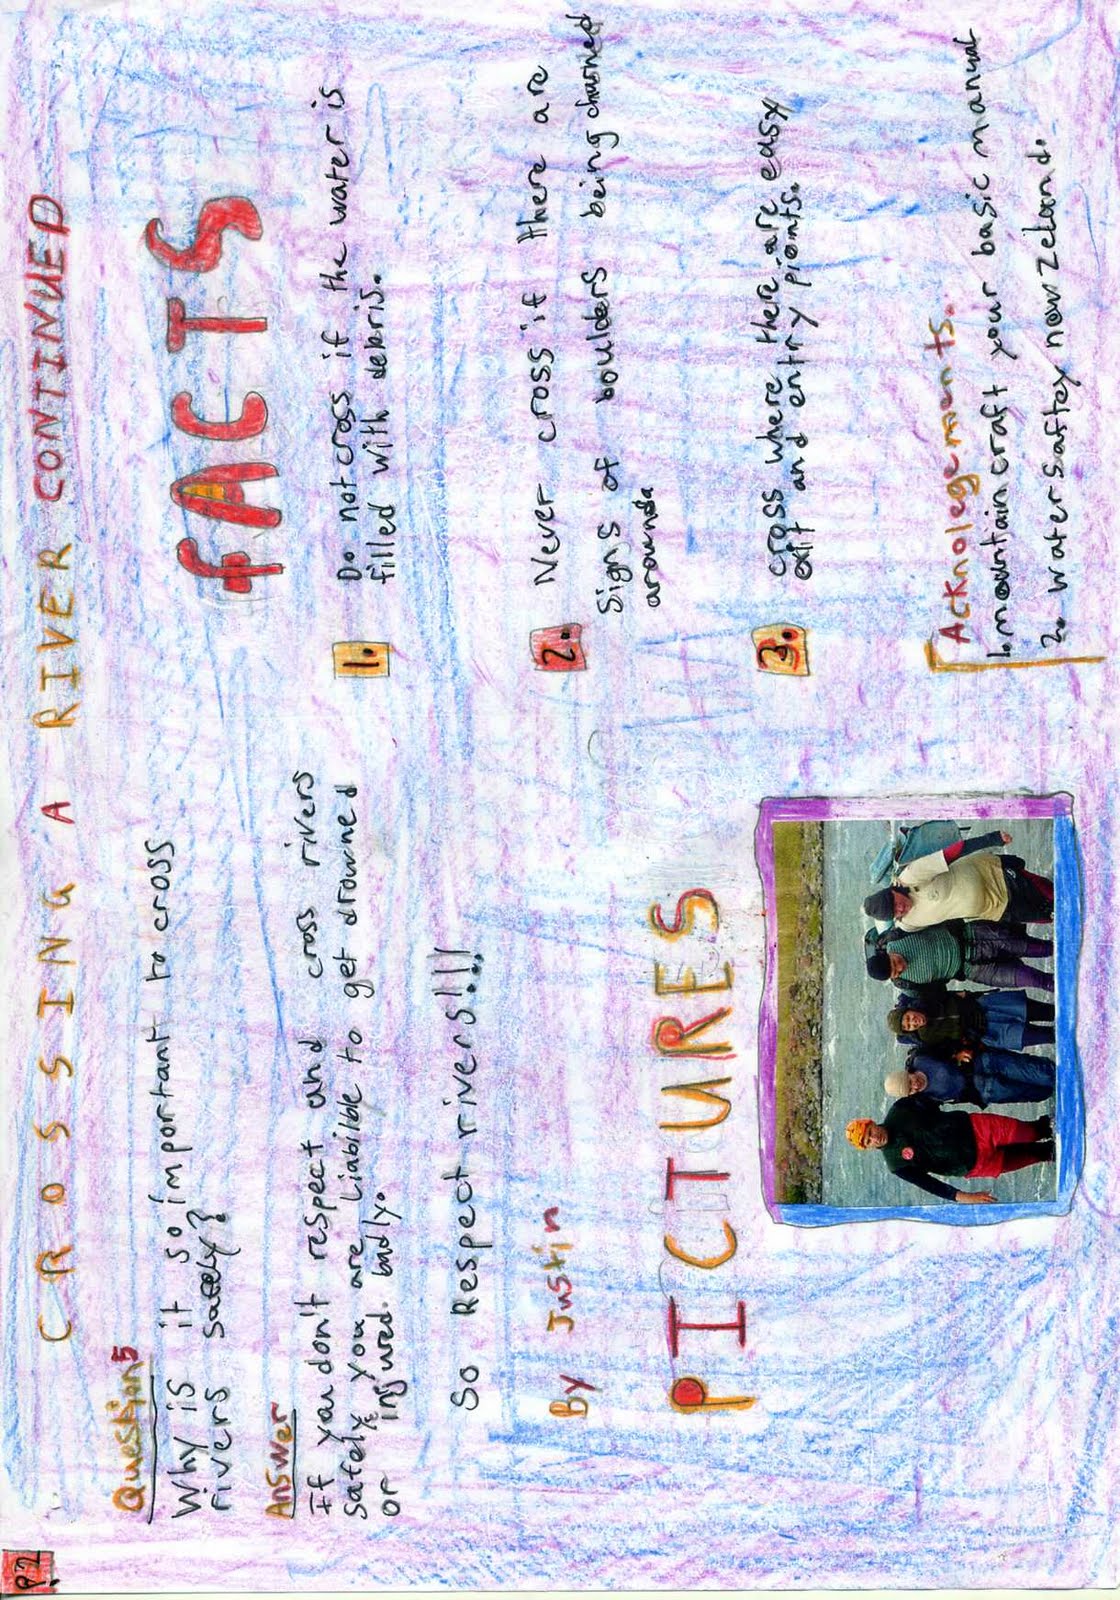 P.2
CROSSING A RIVER CONTINUED
Question 5
Why is it so important to cross
rivers safely?
Answer
If you don't respect and cross rivers
safely you are liabilbe to get drowned
or injured badly.
So Respect rivers!!!
By Justin
PICTURES
FACTS
1. Do not cross if the water is
filled with debris.
2. Never cross if there are
signs of boulders being churned
around
3. cross where there are easy
exit and entry pionts.
Acknolegements.
1. mountain craft your basic manual
2. water saftey new Zeland.